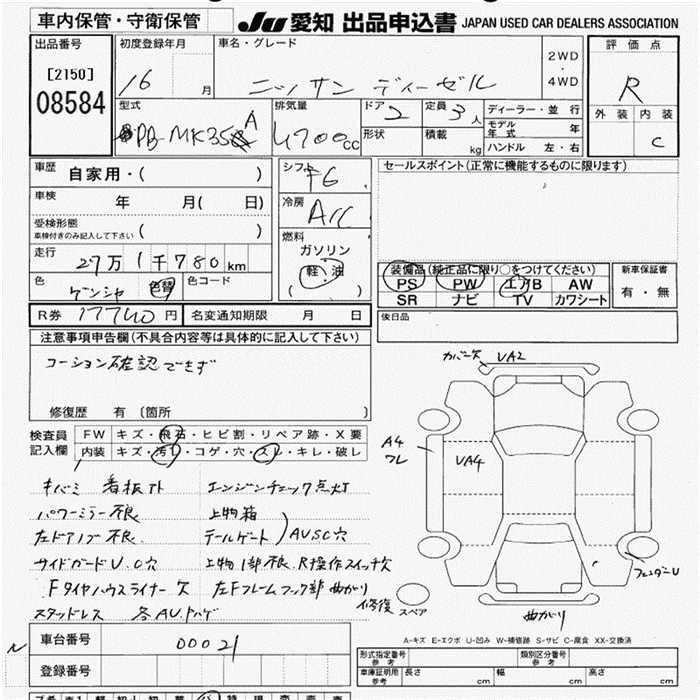 車内保管・守衛保管
JU 愛知 出品申込書 JAPAN USED CAR DEALERS ASSOCIATION
出品番号
[2150]
08584
初度登録年月
16 月
車名・グレード
ニッサン ディーゼル
2WD
・
4WD
評価点
R
外装 内装
C
型式
PB-MK35A
排気量
4700cc
ドア 2
形状
定員 3人
積載 kg
ディーラー・並行
モデル年式 年
ハンドル 左・右
車歴
自家用・( )
車検
年 月( 日)
受検形態
車検付きのみ記入して下さい ( )
走行
27万1千780km
色
ゲンシャ 色替
色コード
シフト F6
冷房
A/C
燃料
ガソリン
軽・油
( )
セールスポイント(正常に機能するものに限ります)
装備品(純正品に限り○をつけてください)
PS PW エアB AW
SR ナビ TV カワシート
新車保証書
有・無
後日品
R券 17740円
名変通知期限 月 日
注意事項申告欄(不具合内容等は具体的に記入して下さい)
コーション確認できず
修復歴 有(箇所 )
検査員記入欄
FW キズ・飛石・ヒビ割・リペア跡・X要
内装 キズ・汚れ・コゲ・穴・スレ・キレ・破レ
キバミ 看板アト エンジンチェック点灯
パワーミラー不良 上物箱
左ドアノブ不良 テールゲート AUSC穴
サイドガードU.C穴 上物1部不良 R操作スイッチ欠
Fタイヤハウスライナー欠 左Fフレームフック部曲がり
スタッドレス 各AU.トハゲ
カバー欠 VA2
A4
ワレ
VA4
フェンダーU
曲がり
修復
スペア
A-キズ E-エクボ U-凹み W-補修跡 S-サビ C-腐食 XX-交換済
車台番号
00021
登録番号
形式指定番号
参考
類別区分番号
参考
車庫証明用
参考
長さ cm 幅 cm 高さ cm